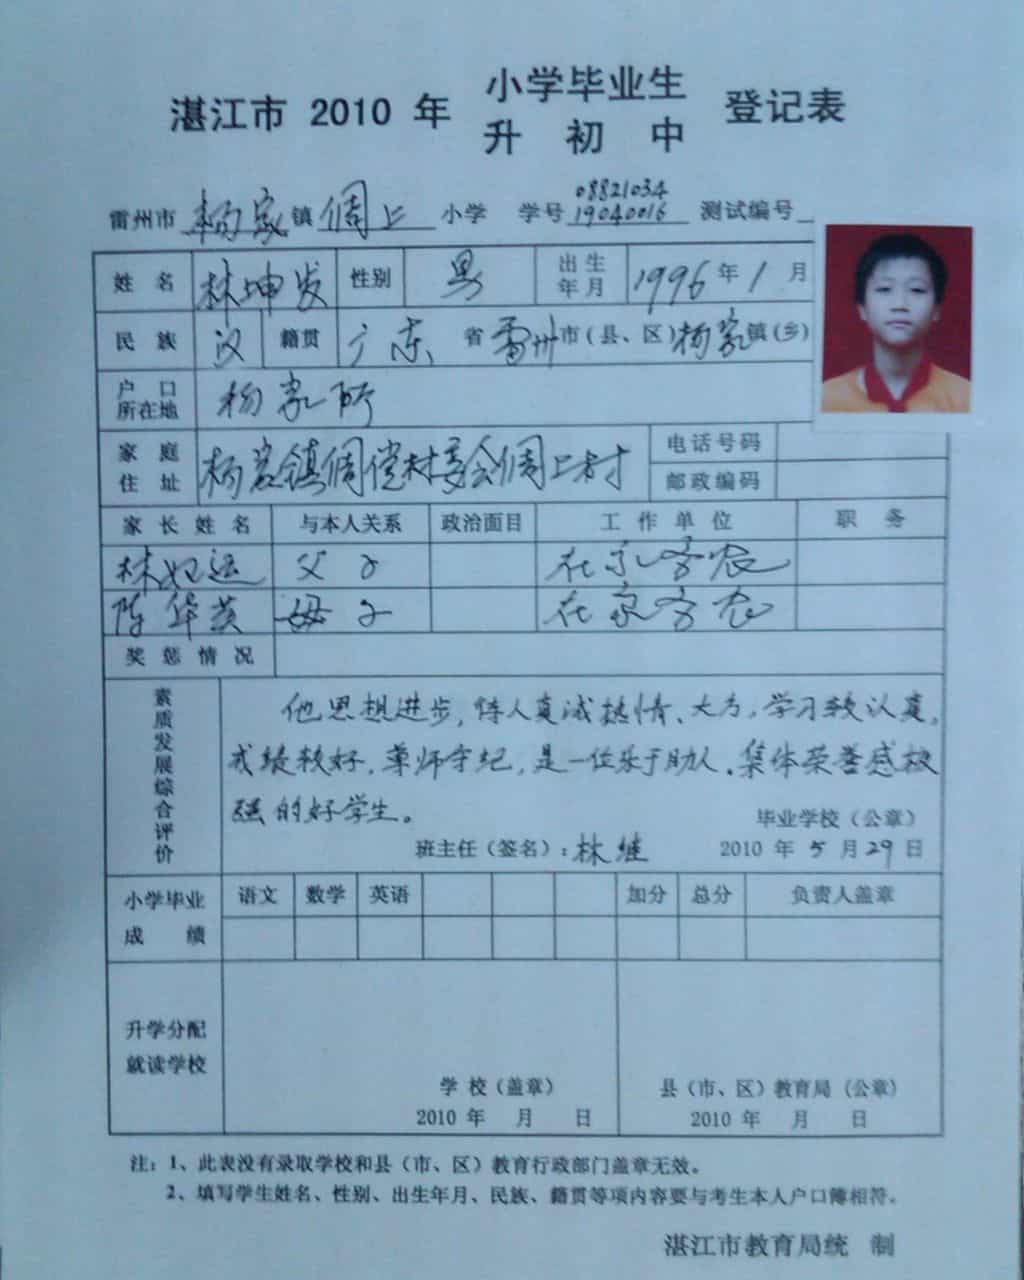 湛江市 2010 年 小学毕业生 登记表
升 初 中
雷州市 杨家 镇 倜上 小学 学号 0882103419040016 测试编号
姓 名 林坤发 性别 男 出生年月 1996 年 1 月
民 族 汉 籍贯 广东 省 雷州 市(县、区) 杨家 镇(乡)
户 口所在地 杨家所
家 庭住 址 杨家镇倜傥村委会倜上村 电话号码
邮政编码
家 长 姓 名 与本人关系 政治面目 工 作 单 位 职 务
林 运 父子 在家务农
陈华英 母子 在家务农
奖 惩 情 况
素质发展综合评价
他思想进步,待人真诚热情、大方,学习较认真,
成绩较好,尊师守纪,是一位乐于助人,集体荣誉感极
强的好学生。
毕业学校(公章)
班主任(签名):林继 2010 年 5 月 29 日
小学毕业成 绩 语文 数学 英语 加分 总分 负责人盖章
升学分配就读学校
学 校(盖章) 县(市、区)教育局(公章)
2010 年 月 日 2010 年 月 日
注:1、此表没有录取学校和县(市、区)教育行政部门盖章无效。
2、填写学生姓名、性别、出生年月、民族、籍贯等项内容要与考生本人户口簿相符。
湛江市教育局统 制